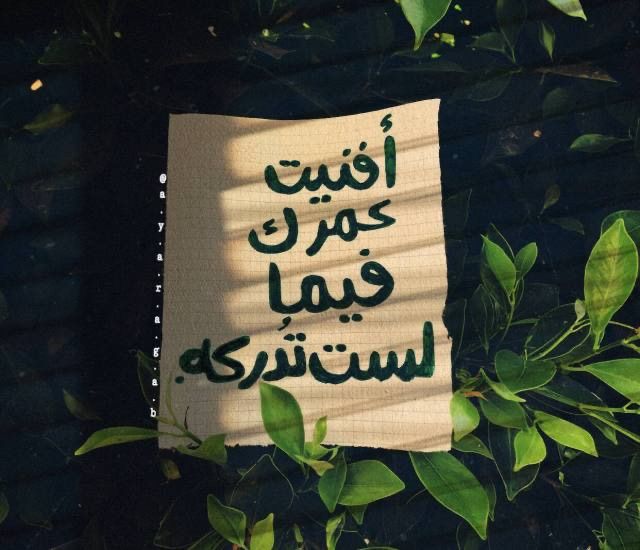 أفنيت
عمرك
فيما
لست تُدركه.
@a.y.a.r.a.g.a.b